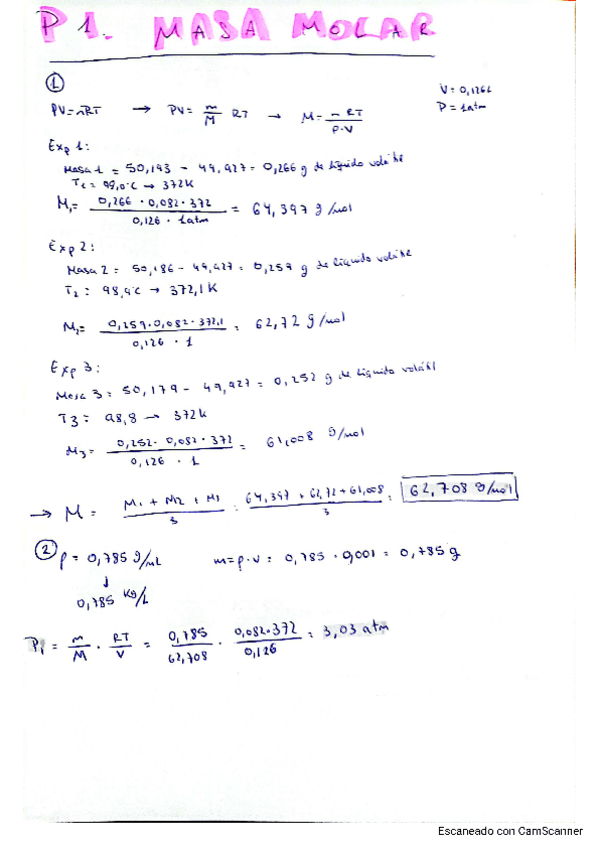 P1. MASA MOLAR
① V = 0,126L
PV=nRT → PV= m/M RT → M = m RT / P·V P = 1atm
Exp 1:
Masa 1 = 50,193 - 49,927 = 0,266 g de líquido volátil
T1 = 99,0°C → 372K
M1 = 0,266 · 0,082 · 372 / 0,126 · 1atm = 64,397 g/mol
Exp 2:
Masa 2 = 50,186 - 49,927 = 0,259 g de líquido volátil
T2 = 98,9°C → 372,1K
M2 = 0,259·0,082·372,1 / 0,126 · 1 = 62,72 g/mol
Exp 3:
Masa 3 = 50,179 - 49,927 = 0,252 g de líquido volátil
T3 = 98,8 → 372K
M3 = 0,252· 0,082 · 372 / 0,126 · 1 = 61,008 g/mol
→ M = M1 + M2 + M3 / 3 = 64,397 + 62,72 + 61,008 / 3 = 62,708 g/mol
② ρ = 0,785 g/mL m=ρ·v = 0,785 · 0,001 = 0,785 g
↓
0,785 Kg/L
P1 = m/M · RT/V = 0,785/62,708 · 0,082·372/0,126 = 3,03 atm
Escaneado con CamScanner